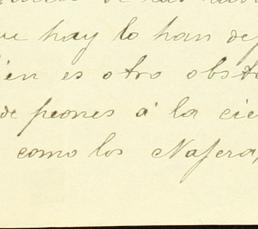 hay lo han de
én es otro obst
de peones á la cie
como los Nafera,